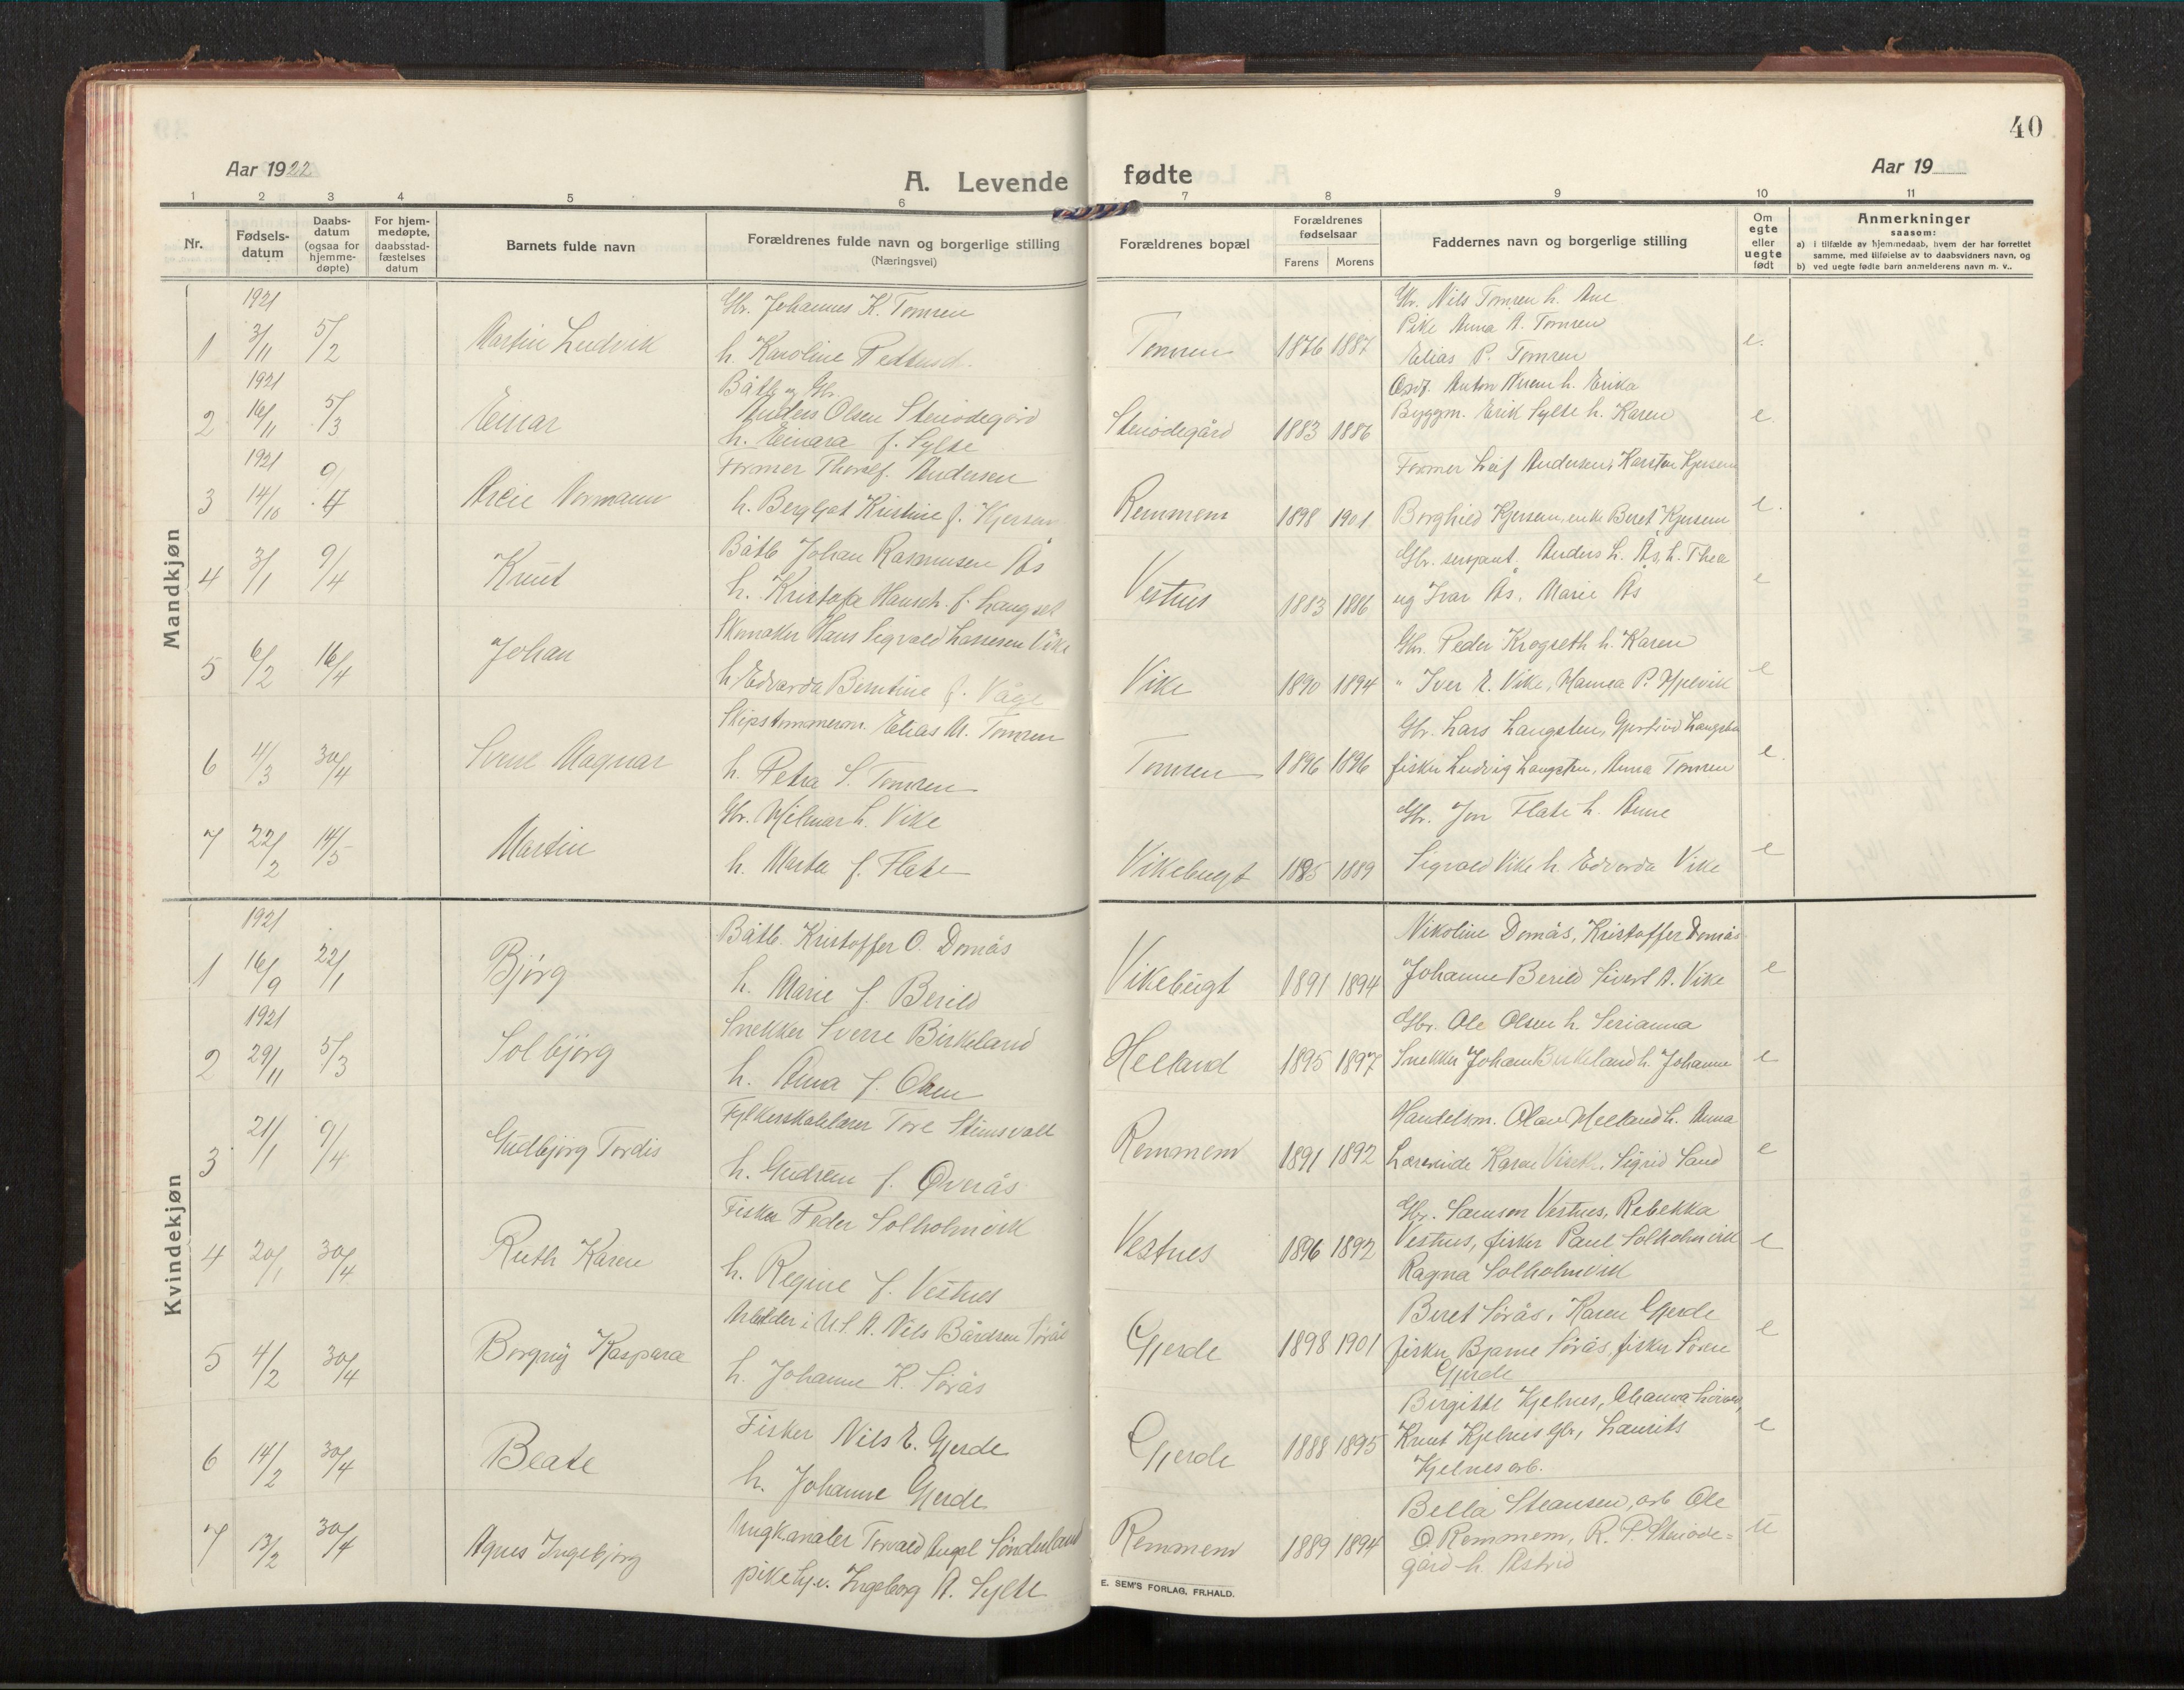 40
Aar 1922
A. Levende fødte
Aar 19
1 2 3 4 5 6 7 8 9 10 11
Nr.
Fødsels-
datum
Daabs-
datum
(ogsaa for
hjemme-
døpte)
For hjem-
medøpte,
daabsstad-
fæstelses
datum
Barnets fulde navn
Forældrenes fulde navn og borgerlige stilling
(Næringsvei)
Forældrenes bopæl
Forældrenes
fødselsaar
Farens Morens
Faddernes navn og borgerlige stilling
Om
egte
eller
uegte
født
Anmerkninger
saasom:
a) i tilfælde av hjemmedaab, hvem der har forrettet
samme, med tilføielse av to daabsvidners navn, og
b) ved uegte fødte barn anmelderens navn m. v..
Mandkjøn
1921
1 3/11 5/2 Martin Ludvik
Gbr. Johannes K. Tomren
h. Karoline Pettersd.
Tomren 1876 1887
Gbr. Nils Tomren h. Ane
Pike Anna A. Tomren
Elias P. Tomren
e.
1921
2 16/11 5/3 Einar
Båtb. og Gbr.
Anders Olsen Steiodegård
h. Einara f. Sylte
Steiodegård 1883 1886
Anton h. Erika
Byggm. Erik Sylte h. Karen
e.
1921
3 14/10 9/4 Areie Normann
Former Thoralf Andersen
h. Bergljot Kristine f. Kjersem
Remmem 1898 1901
Former Leif Andersen, Karsten Kjersem
Borghild Kjersem, enke Beret Kjersem
e.
4 3/1 9/4 Knut
Båtb Johan Rasmusen Ås
h. Kristofa Hansd. f. Langset
Vestnes 1883 1886
Gbr. sersjant. Anders L. Ås, h. Thea
og Ivar Ås, Marie Ås
e
5 6/2 16/4 Johan
Skomaker Hans Sigvald Larsen Vike
h. Edvarda Berntine f. Våge
Vike 1890 1894
Gbr. Peder Krogseth h. Karen
" Iver E. Vike, Hanna P. Hjelvik
e
6 4/3 30/4 Sverre Magnar
Skipstømmerm. Elias A. Tomren
h. Petra S. Tomren
Tomren 1896 1896
Gbr. Lars Langsten, Gjertrud Langsten
fisker Ludvig Langsten, Anna Tomren
e.
7 22/2 14/5 Martin
Gbr. Hilmar L. Vike
h. Marta f. Flate
Vikebugt 1885 1889
Gbr. Jon Flate h. Anne
Sigvald Vike h. Edvarda Vike
e
Kvindekjøn
1921
1 16/9 22/1 Bjørg
Båtb. Kristoffer O. Domås
h. Marie f. Berild
Vikebugt 1891 1894
Nikoline Domås, Kristoffer Domås
Johanne Berild Sivert A. Vike
e
1921
2 29/11 5/3 Solbjørg
Snekker Sverre Birkeland
h. Anna f. Olsen
Helland 1895 1897
Gbr. Ole Olsen h. Serianna
Snekker Johan Birkeland h. Johanne
e
3 21/1 9/4 Gudbjørg Tordis
Fylkesskolelærer Tore Steinsvoll
h. Gudrun f. Øverås
Remmem 1891 1892
Handelsm. Olav Helland h. Anna
Lærerinde Karen Viseth, Sigrid Sand
e
4 20/1 30/4 Ruth Karen
Fisker Peder Solholmvik
h. Regine f. Vestnes
Vestnes 1896 1892
Gbr. Samson Vestnes, Rebekka
Vestnes, fisker Paul Solholmvik
Ragna Solholmvik
e
5 4/2 30/4 Borgny Kaspara
Arbeider i U.S.A. Nils Bårdsen Sørås
h. Johanne K. Sørås
Gjerde 1898 1901
Beret Sørås, Karen Gjerde
fisker Bjarne Sørås, fisker Søren
Gjerde
e
6 14/2 30/4 Beate
Fisker Nils E. Gjerde
h. Johanne Gjerde
Gjerde 1888 1895
Birgitte Kjelnes,
Knut Kjelnes gbr, Laurits
Kjelnes arb.
e
7 13/2 30/4 Agnes Ingebjørg
Ungk. maler Torvald Angel Sønderland
pike hje. Ingeborg A. Sylte
Remmem 1889 1894
Bella Steansen, arb Ole
O Remmem, R. P. Steiode=
gård h. Astrid
u
E. SEM'S FORLAG, FR.HALD.